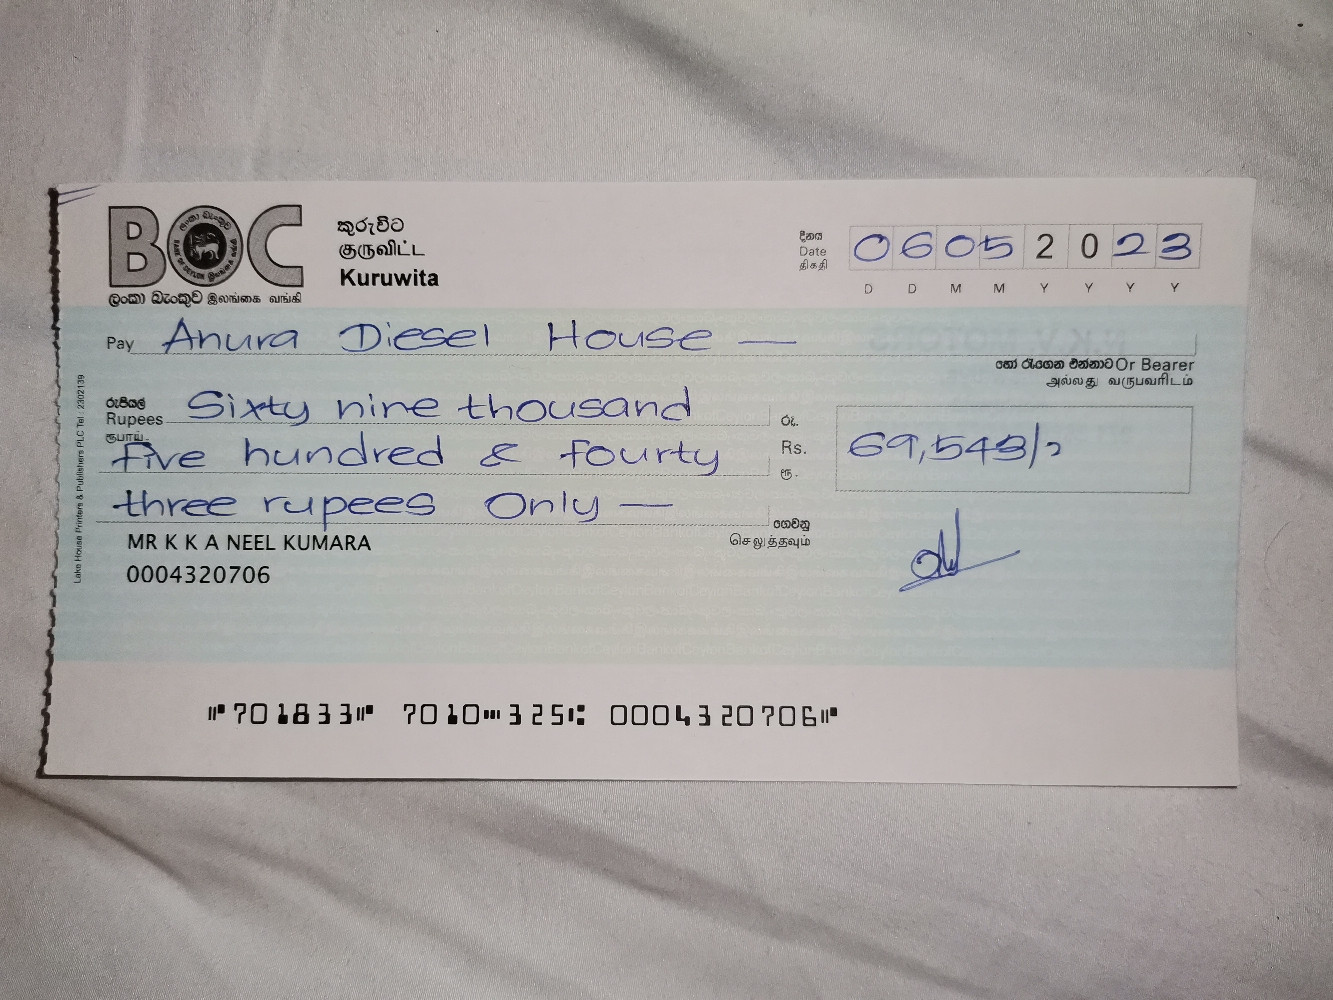 BOC
ලංකා බැංකුව இலங்கை வங்கி
කුරුවිට
குருவிட்ட
Kuruwita
දිනය
Date
திகதி
06052023
D D M M Y Y Y Y
Pay Anura Diesel House —
හෝ රැගෙන එන්නාට Or Bearer
அல்லது வருபவரிடம்
රුපියල්
Rupees Sixty nine thousand
ரூபாய்
five hundred & fourty
three rupees Only —
රු.
Rs. 69,543/=
ரூ.
ගෙවනු
செலுத்தவும்
MR K K A NEEL KUMARA
0004320706
Lake House Printers & Publishers PLC Tel : 2302139
⑈701833⑈ 7010⑉325⑆ 0004320706⑈